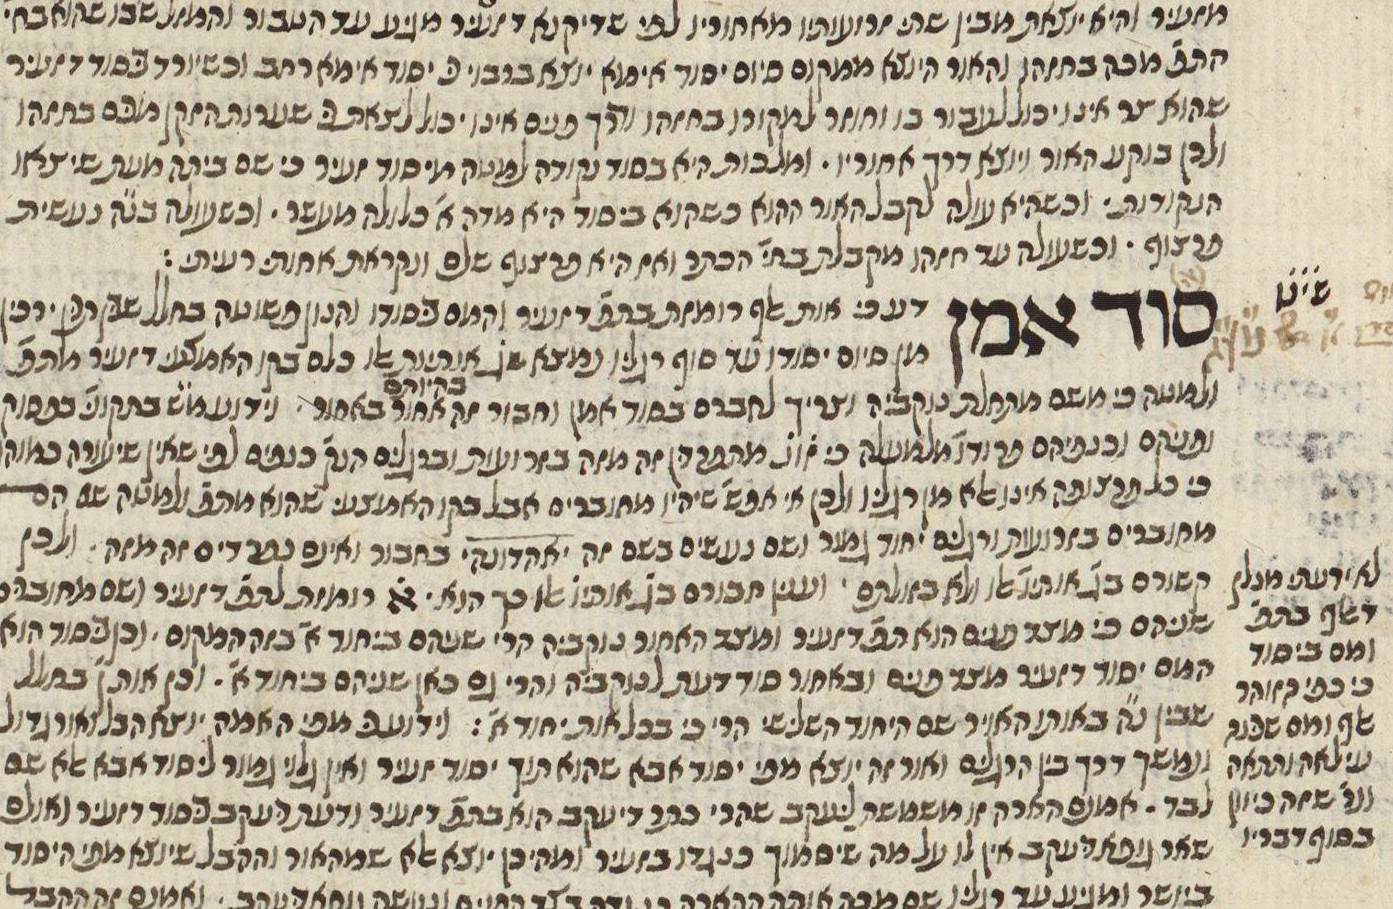 מזעיר והיא יוצאת מבין שתי זרועותיו מאחוריו לפי שדיקנא דזעיר מגיע עד הטבור והמזל שבו שהוא בחי'
התפ' מכה בחזהו והאור היוצא ממקום סיום יסוד אימא יוצא ברבוי כי יסוד אימא רחב וכשיורד ביסוד דזעיר
שהוא צר אינו יכול לעבור בו וחוזר למקורו בחזהו ודרך פנים אינו יכול לצאת כי שערות הזקן מכים בחזהו
ולכן בוקע האור ויוצא דרך אחוריו . ומלכות היא בסוד נקודה למטה מיסוד זעיר כי שם ביתה מעת שיצאו
הנקודות . וכשהיא עולה לקבל האור ההוא כשהוא ביסוד היא מדה א' כלולה מעשר . וכשעולה בנ"ה נעשית
פרצוף . וכשעולה עד חזהו מקבלת בחי' הכתר ואז היא פרצוף שלם ונקראת אחותי רעיתי :
סוד אמן
דע כי אות אלף רומזת בתפ' דזעיר והמם ביסודו והנון פשוטה בחלל שבין ירכין
מן סיום יסודו עד סוף רגליו נמצא שג' אותיות אלו כלם בקו האמצעי דזעיר מהתפ'
ולמטה כי משם מתחלת נוקביה וצריך לחברם בסוד אמן וחבור זה בהיותם אחור באחור . וידוע מ"ש בתקוני' בפסוק
ופניהם וכנפיהם פרודו' מלמעלה כי זו"ן מתפרדן זה מזה בזרועות וברגלים הנק' כנפים לפי שאין שיעורה כמוהו
כי כל פרצופה אינו אלא מן רגליו ולכן אי אפש' שיהיו מחוברים אבל בקו האמצעי שהוא מהתפ' ולמטה שם הם
מחוברים בזרועות ורגלים יחוד גמור ושם נעשים בשם זה יאהדונהי בחבור ואינם נפרדים זה מזה . ולכן
קשורם בג' אותיו' אלו ולא בזולתם . וענין חבורם בג' אותיו' אלו כך הוא . א רומזת לתפ' דזעיר ושם מחוברים
שניהם כי מצד פנים הוא תפ' דזעיר ומצד האחור נוקביה הרי שניהם ביחוד א' בזה המקום . וכן בסוד הוא
המם יסוד דזעיר מצד פנים ובאחור סוד דעת לנוקביה והרי גם כאן שניהם ביחוד א' . וכן אות ן' בחלל
שבין נ"ה באותו האויר שם היחוד השלישי הרי כי בכל אות יחוד א' : וידוע כי מפי האמה יוצא הבל ואור גדול
ונמשך דרך בין הרגלים ואור זה יוצא מפי יסוד אבא שהוא תוך יסוד זעיר ואין גלוי גמור ליסוד אבא אלא שם
לבד . אמנם הארה זו משמשת ליעקב שהרי כתר דיעקב הוא בתפ' דזעיר ודעת יעקב ביסוד דזעיר ואולם
שאר גופא דיעקב אין לו על מה שיסמוך כנגדו בזעיר ומהיכן יוצא אלא שמהאור וההבל שיוצא מפי היסוד
ביושר ומגיע עד רגליו שם מכה אותה ההארה
ש'י'ט
לא ידעתי מנלן
דאלף בתפ'
ומם ביסוד
כי כפי הזוהר
אלף ומם שהנה
עילאה ותתאה
ונר' שזה כיוון
בסוף דבריו